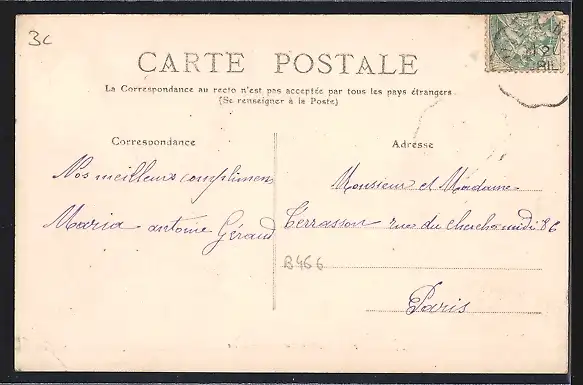 3c
CARTE POSTALE
La Correspondance au recto n'est pas acceptée par tous les pays étrangers
(Se renseigner à la Poste)
Correspondance
Adresse
Nos meilleurs compliments
Maria antoine Géraud
Monsieur et Madame
Terrasson rue du cherche midi 86
B456
Paris
12